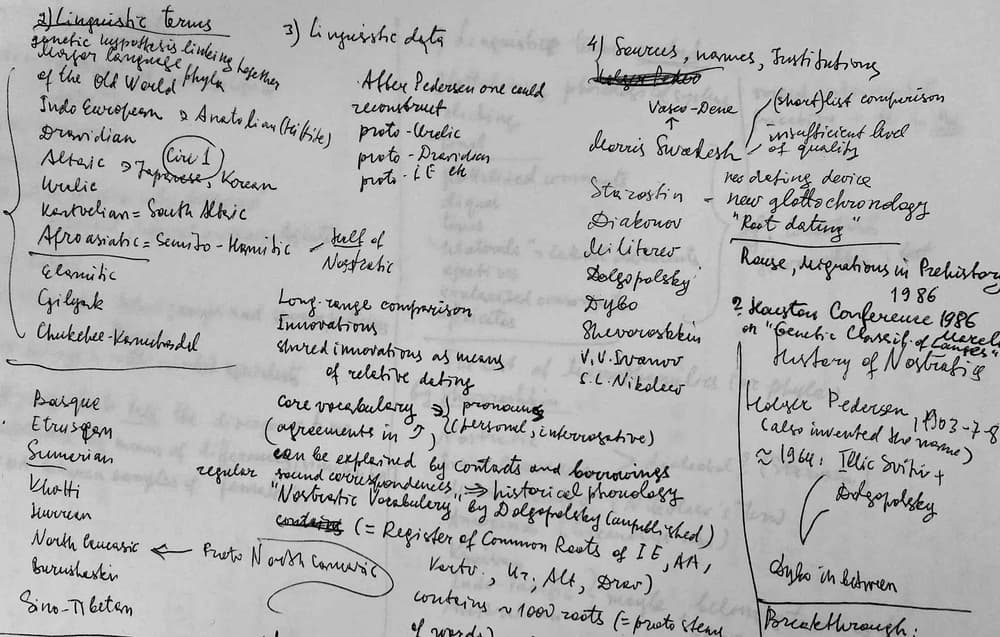 2) Linguistic terms
genetic hypothesis linking together
Major language
phyla
of the Old World
Indo European → Anatolian (Hittite)
Dravidian
Circ 1
Altaic → Japanese, Korean
Uralic
Kartvelian = South Altaic
Afroasiatic = Semito-Hamitic – half of
Nostratic
Elamitic
Gilyak
Chukchee-Kamchadal
Basque
Etruscan
Sumerian
Khatti
Hurrian
North Caucasic ← Proto North Caucasic
Burushaski
Sino-Tibetan
3) Linguistic data
After Pedersen one could
reconstruct
proto-Uralic
proto-Dravidian
proto-IE etc
Long-range comparison
Innovations
shared innovations as means
of relative dating
core vocabulary → pronouns
(agreements in ↑) (personal, interrogative)
can be explained by contacts and borrowings
regular sound correspondences → historical phonology
"Nostratic Vocabulary" by Dolgopolsky (unpublished)
contains (= Register of Common Roots of IE, AA,
Kartv., Ur, Alt, Drav)
contains ~ 1000 roots (= proto stems
of words)
4) Sources, names, Institutions
Holger Peder
Vasco-Dene
↑
Morris Swadesh
(short) list comparison
insufficient level
of quality
Starostin –
new dating device
new glottochronology
"Root dating"
Diakonov
Militarev
Dolgopolsky
Dybo
Shevoroshkin
V.V. Ivanov
S.L. Nikolaev
Rouse, Migrations in Prehistory
1986
? Houston Conference 1986
March
on "Genetic Classif. of Langues"
History of Nostratics
Holger Pedersen, 1903-7-8
(also invented the name)
≈ 1964: Illic Svityc +
Dolgopolsky
Dybo in between
Breakthrough: